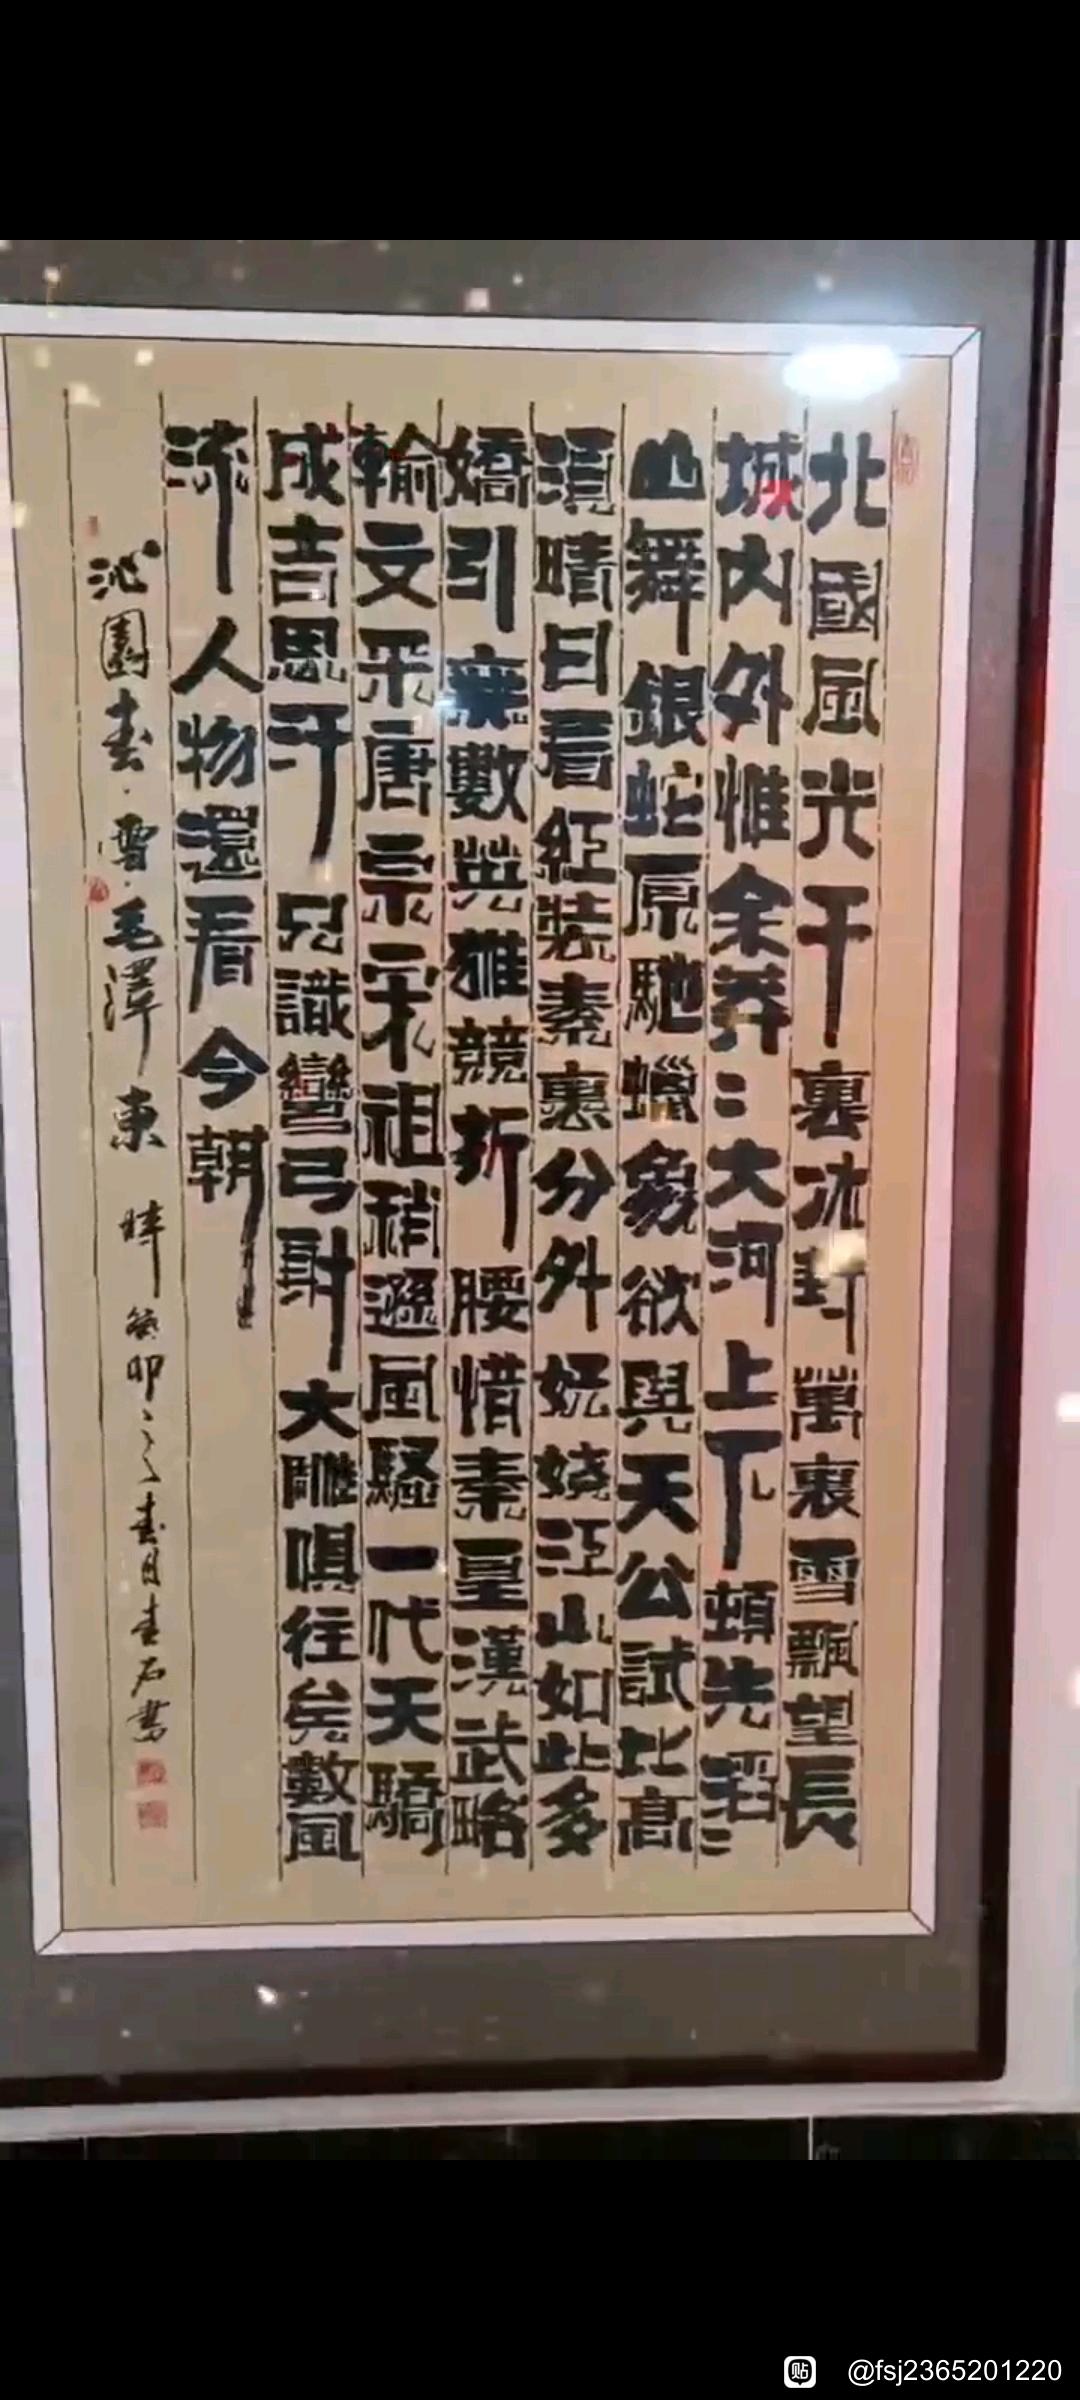 北國風光千裏冰封萬裏雪飄望長
城内外惟余莽〻大河上下頓失滔〻
山舞銀蛇原馳蠟象欲與天公試比高
須晴日看紅裝素裹分外妖嬈江山如此多
嬌引無數英雄競折腰惜秦皇漢武略
輸文采唐宗宋祖稍遜風騷一代天驕
成吉思汗只識彎弓射大雕俱往矣數風
流人物還看今朝
沁園春·雪·毛澤東 時癸卯之春月石書
貼 @fsj2365201220